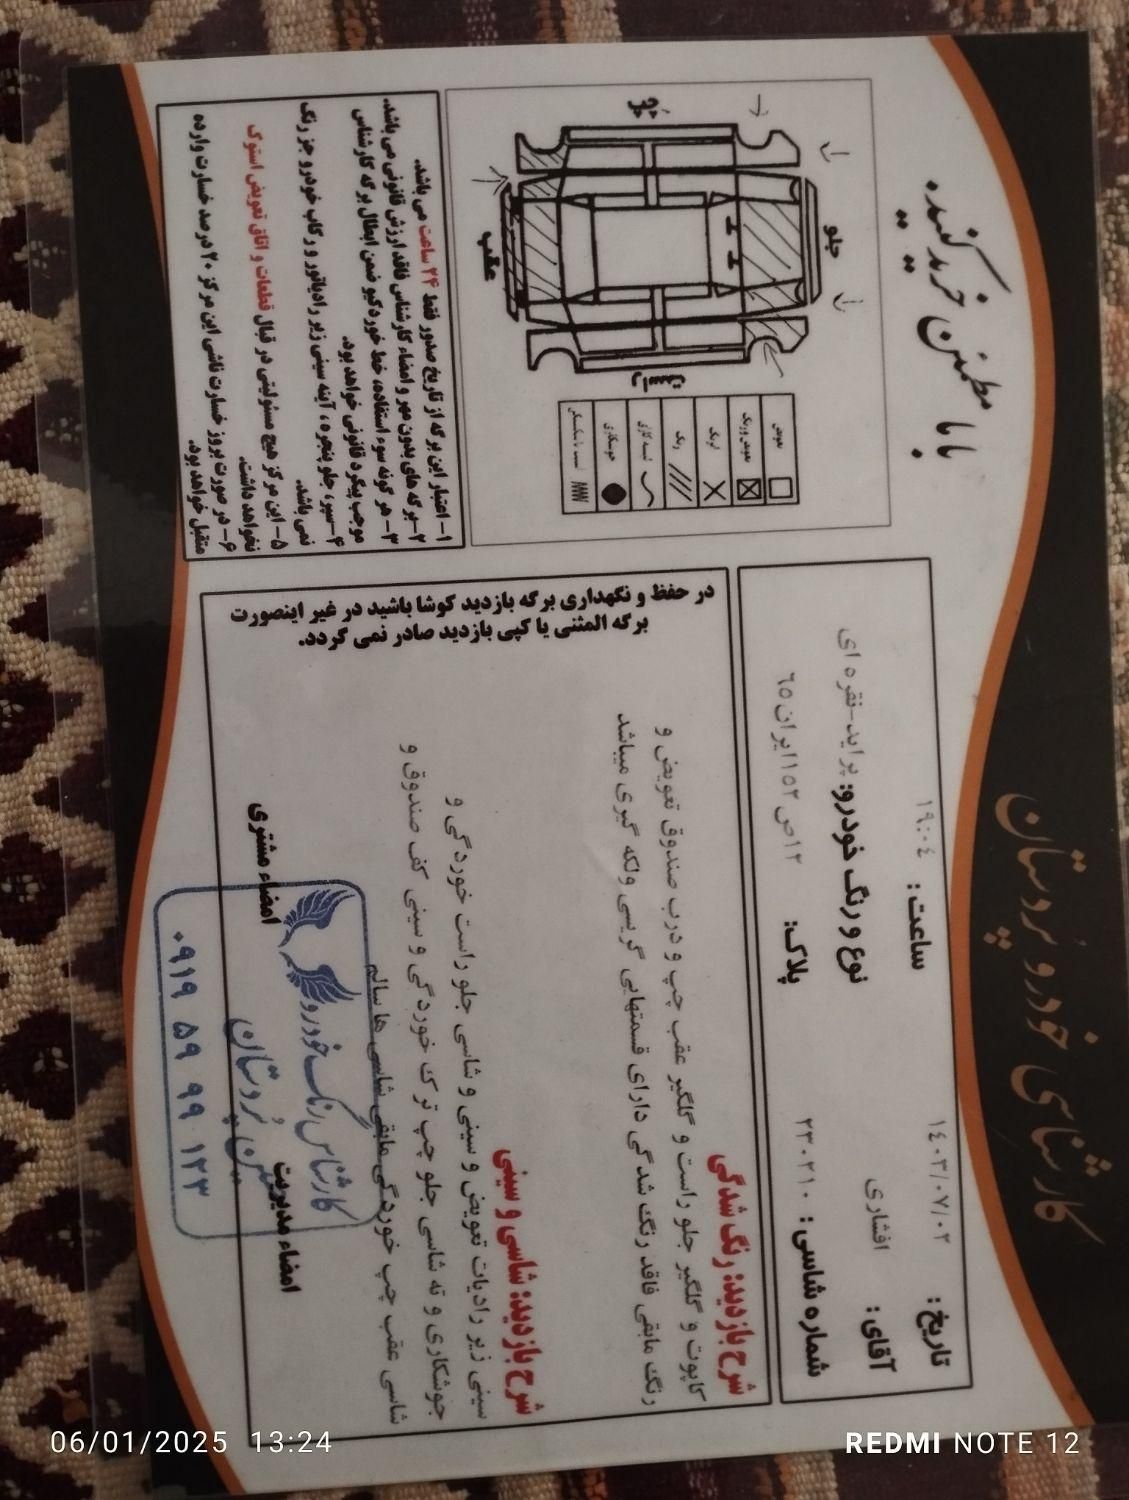 کارشناسی خودرو پردستان
با ما مطمئن خرید کنید.
تاریخ: ۱۴۰۳/۰۷/۰۲
ساعت: ۱۹:۰۴
آقای: افشاری
نوع و رنگ خودرو: پراید-نقره ای
شماره شاسی: ۲۳۰۲۱۰
پلاک: ۱۲ص۱۵۲ایران۶۵
شرح بازدید: رنگ شدگی
کاپوت و گلگیر جلو راست و گلگیر عقب چپ و درب صندوق تعویض و
رنگ مابقی فاقد رنگ شدگی دارای قسمتهایی گریسی ولکه گیری میباشد
شرح بازدید: شاسی و سینی
سینی زیر رادیات تعویض و سینی و شاسی جلو راست خوردگی و
جوشکاری و ته شاسی جلو چپ ترک خوردگی و سینی کف صندوق و
شاسی عقب چپ خوردگی مابقی شاسی ها سالم
در حفظ و نگهداری برگه بازدید کوشا باشید در غیر اینصورت
برگه المثنی یا کپی بازدید صادر نمی گردد.
امضاء مدیریت
امضاء مشتری
کارشناس رنگ خودرو
پردستان
۰۹۱۹ ۵۹ ۹۹ ۱۲۳
جلو
عقب
تعویض
تعویض و رنگ
رنگ
جوشکاری
۱- اعتبار این برگه از تاریخ صدور فقط ۲۴ ساعت می باشد.
۲-برگه های بدون مهر و امضاء کارشناس فاقد ارزش قانونی می باشد.
۳- هر گونه سوء استفاده، خط خوردگیو ضمن ابطال برگه کارشناس
موجب پیگرد قانونی خواهد بود.
۴-سپر، جلو پنجره، آینه سینی زیر رادیاتور و رکاب خودرو جز رنگ
نمی باشد.
۵- این مرکز هیچ مسئولیتی در قبال قطعات و اتاق تعویض استوک
نخواهد داشت.
۶- در صورت بروز خسارت ناشی این مرکز ۲۰ درصد خسارت وارده
متقبل خواهد بود.
06/01/2025 13:24
REDMI NOTE 12